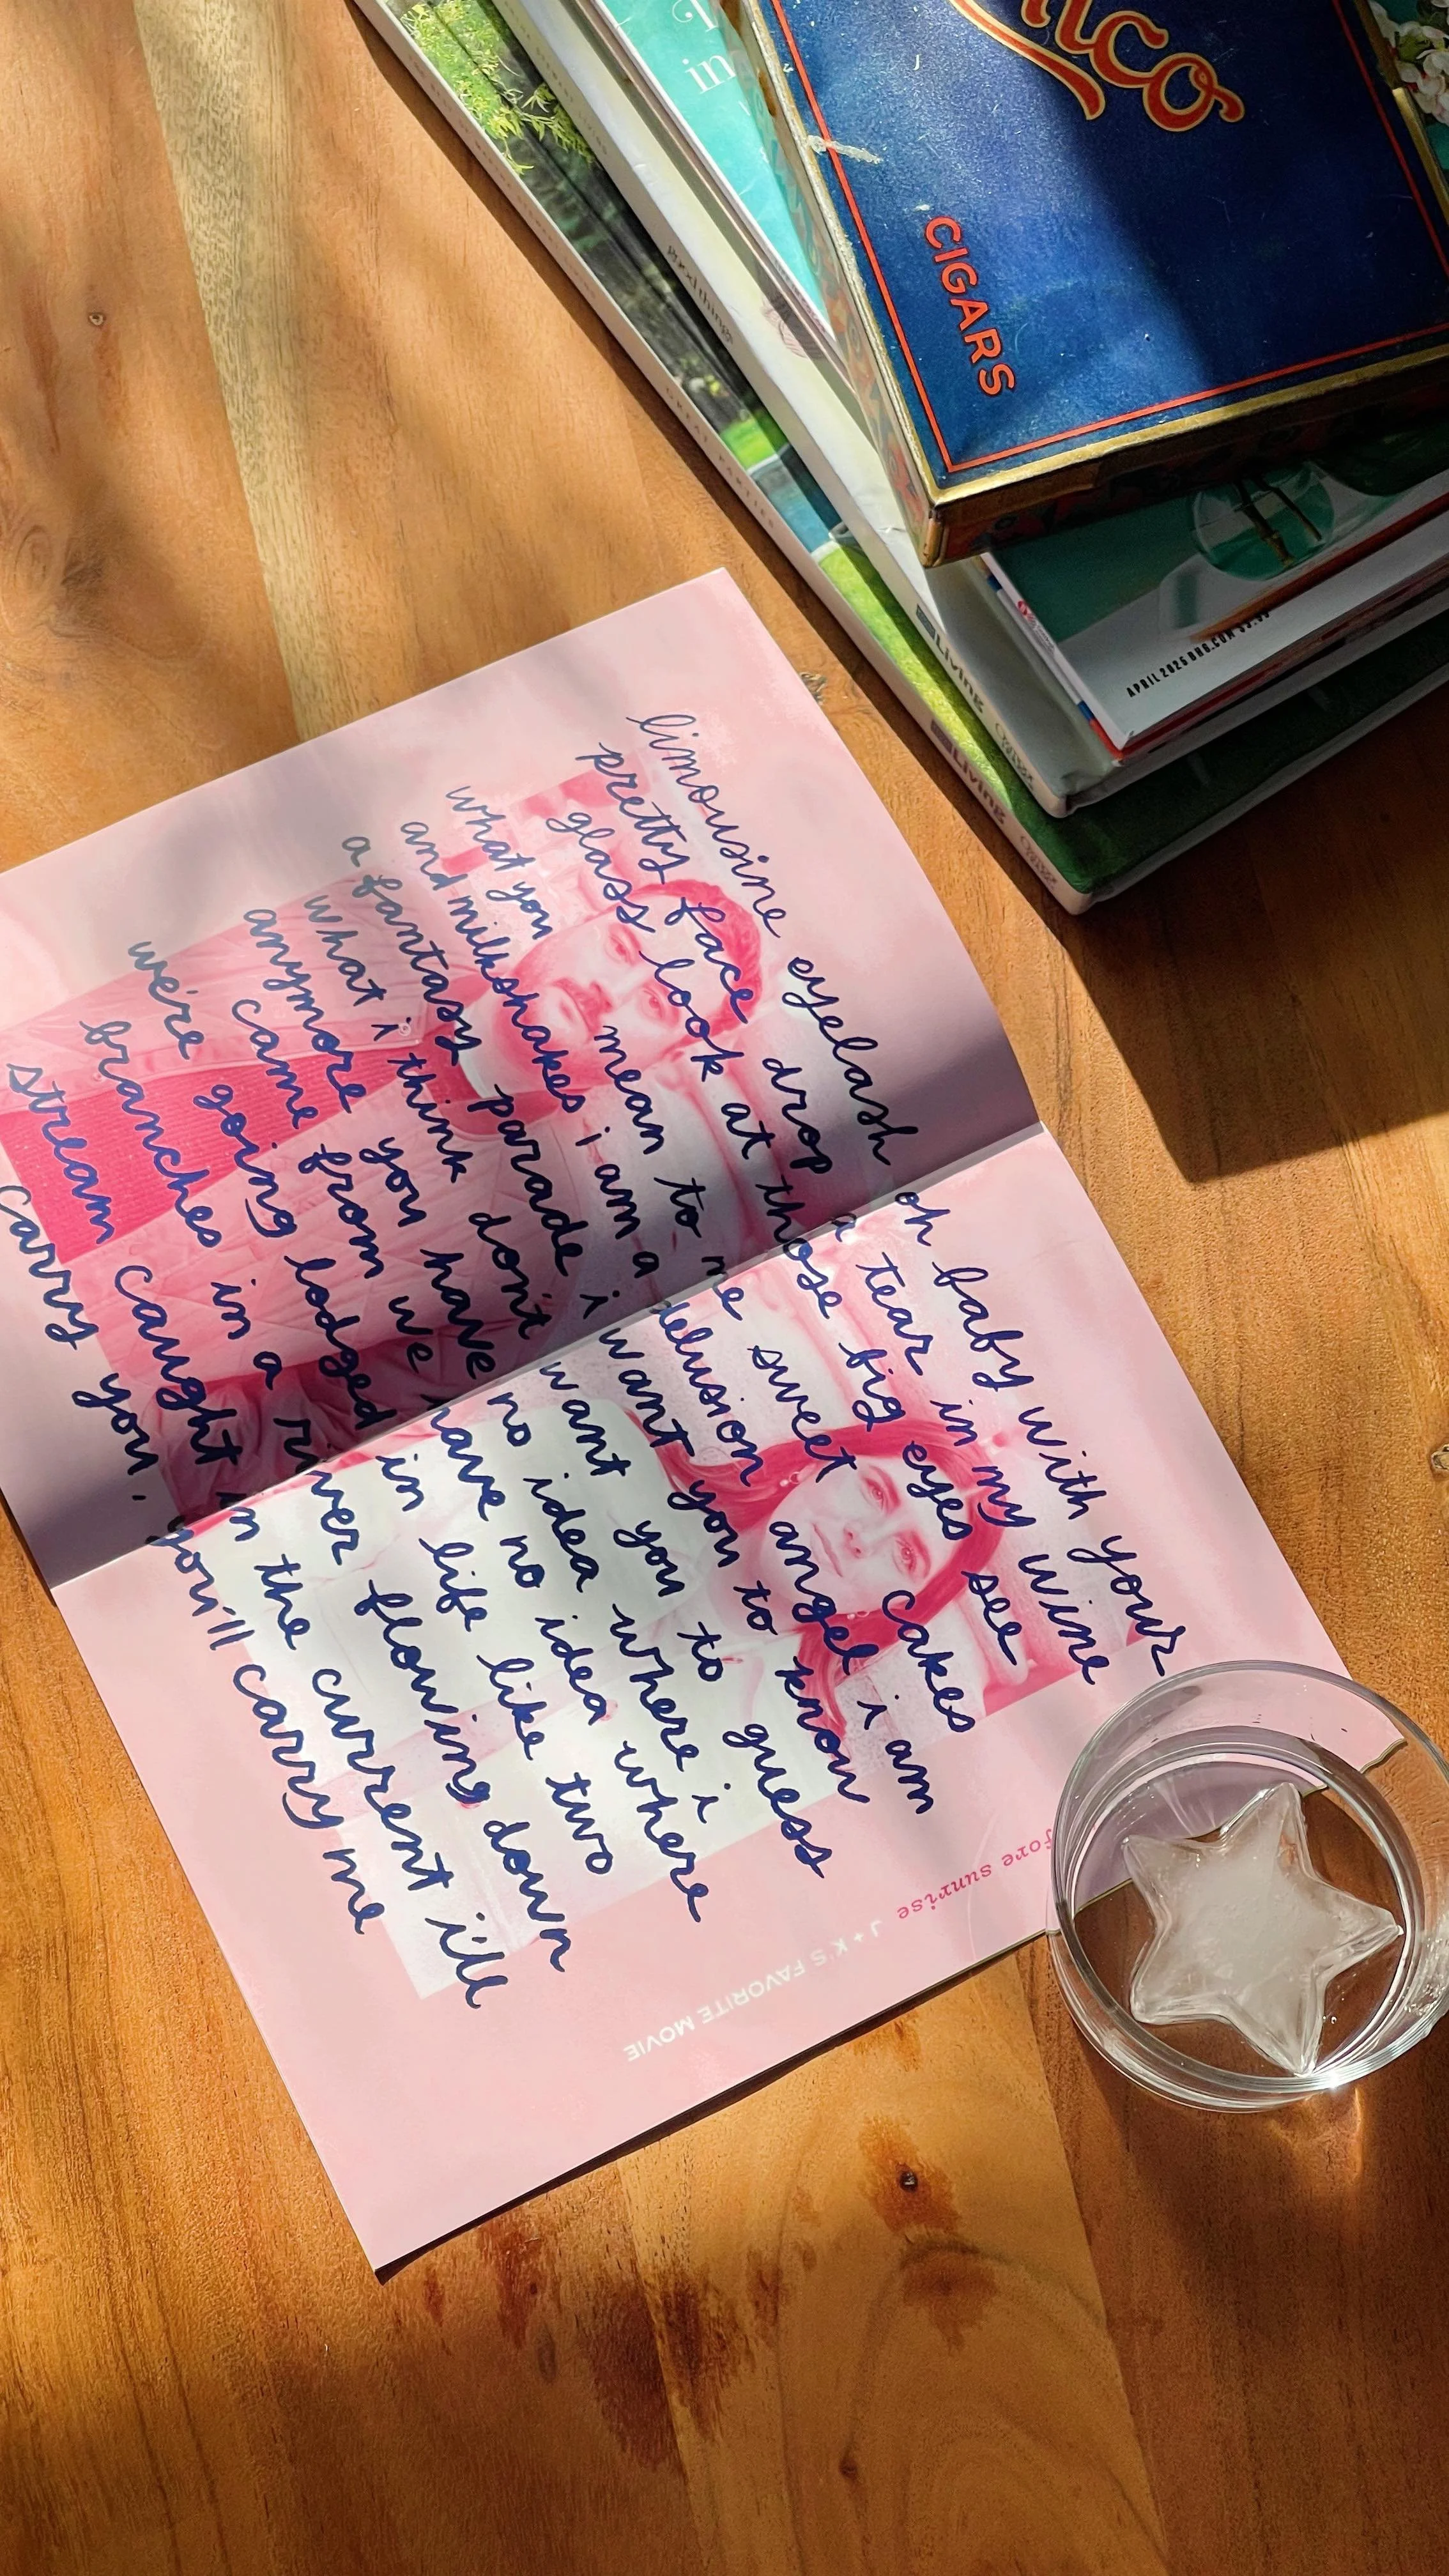 in
CIGARS
good things
GREAT PARTIES
Living
Living
APRIL 2025 BHG.COM
limousine eyelash oh baby with your
pretty face drop a tear in my wine
glass look at those big eyes see
what you mean to me sweet cakes
and milkshakes i am a delusion angel i am
a fantasy parade i want you to know
what i think don't want you to guess
anymore you have no idea where i
came from we have no idea where
we're going lodged in life like two
branches in a river flowing down
stream caught in the current i'll
carry you. you'll carry me
fore sunrise
J + K'S FAVORITE MOVIE